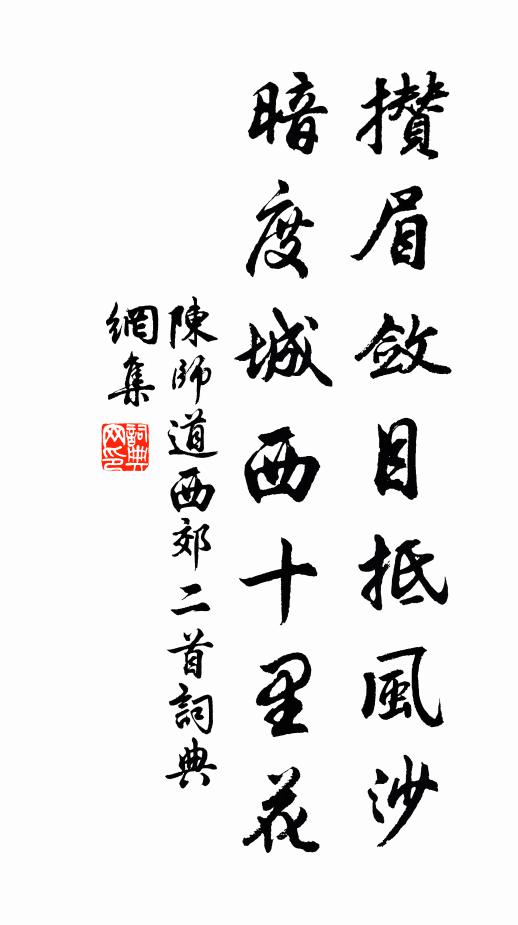 攢眉斂目抵風沙
暗度城西十里花
陳師道西郊二首詞典
網集
詞典
网印